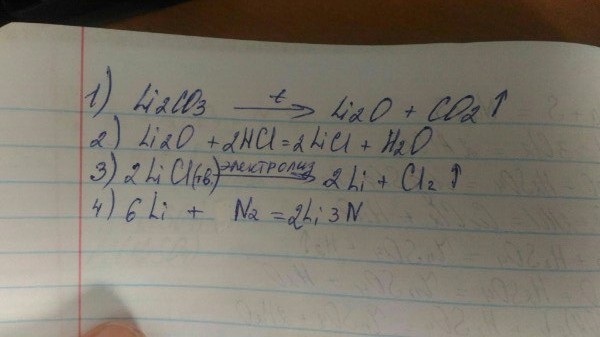 1) Li2CO3 —t→ Li2O + CO2 ↑
2) Li2O + 2HCl = 2LiCl + H2O
3) 2LiCl(тв.) —электролиз→ 2Li + Cl2 ↑
4) 6Li + N2 = 2Li3N